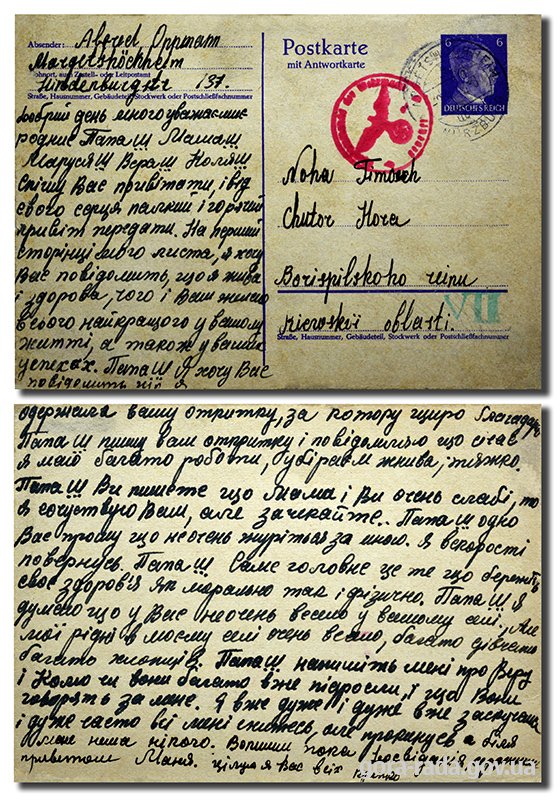 Absender: Alovel Oppmann
Margetshöchheim
Wohnort, auch Zustell- oder Leitpostamt
Hindenburgstr 137.
Straße, Hausnummer, Gebäudeteil, Stockwerk oder Postschließfachnummer
Postkarte
mit Antwortkarte
6 6
DEUTSCHES REICH
Noha Timoch
Chutor Hora
Borispilskoho reinu
kiewskoi oblasti.
Straße, Hausnummer, Gebäudeteil, Stockwerk oder Postschließfachnummer
Добрий день многоуважаємиє
родниє Папаш Мамаш
Маруся Ш Вєраш Коляш
Спішу Вас привітати, і від
свого серця палкий і горячий
привіт передати. На першій
сторінці мого листа, я хочу
Вас повідомить, що я жива
і здорова, чого і Вам желаю
всього найкращого у вашому
житті, а також у ваших
успехах. Папа Ш Я хочу Вас
повідомить що я
одержала вашу откритку, за котору щиро благадарю
Папа Ш пишу вам откритку і повідомляю що січас
я маїї багато роботи, бо убіраєм жнива, тяжко.
Папа Ш Ви пишете що мама і Ви очень слабі, то
я сочуствую Вам, але зачекайте. Папа Ш одно
Вас прошу що неочень журіться за мною. Я вскорості
повернусь. Папа Ш Саме головне це те що бережіть
своє здоров'я як морально так і фізично. Папа Ш Я
думаю що у Вас неочень весело у вашому селі, Але
мої рідні в моєму селі очень весело, багато дівчат
багато хлопців. Папа Ш напишіть мені про Вєру
і Колю чи вони багато вже підросли, і що вони
говорять за мене. Я вже дуже і дуже вже заскучала
і дуже часто всі мені снитесь, але прокинусь а біля
мене нема нікого. Вопшим пока досвідання
привітом Маня. цілую я Вас всіх
rada.gov.ua